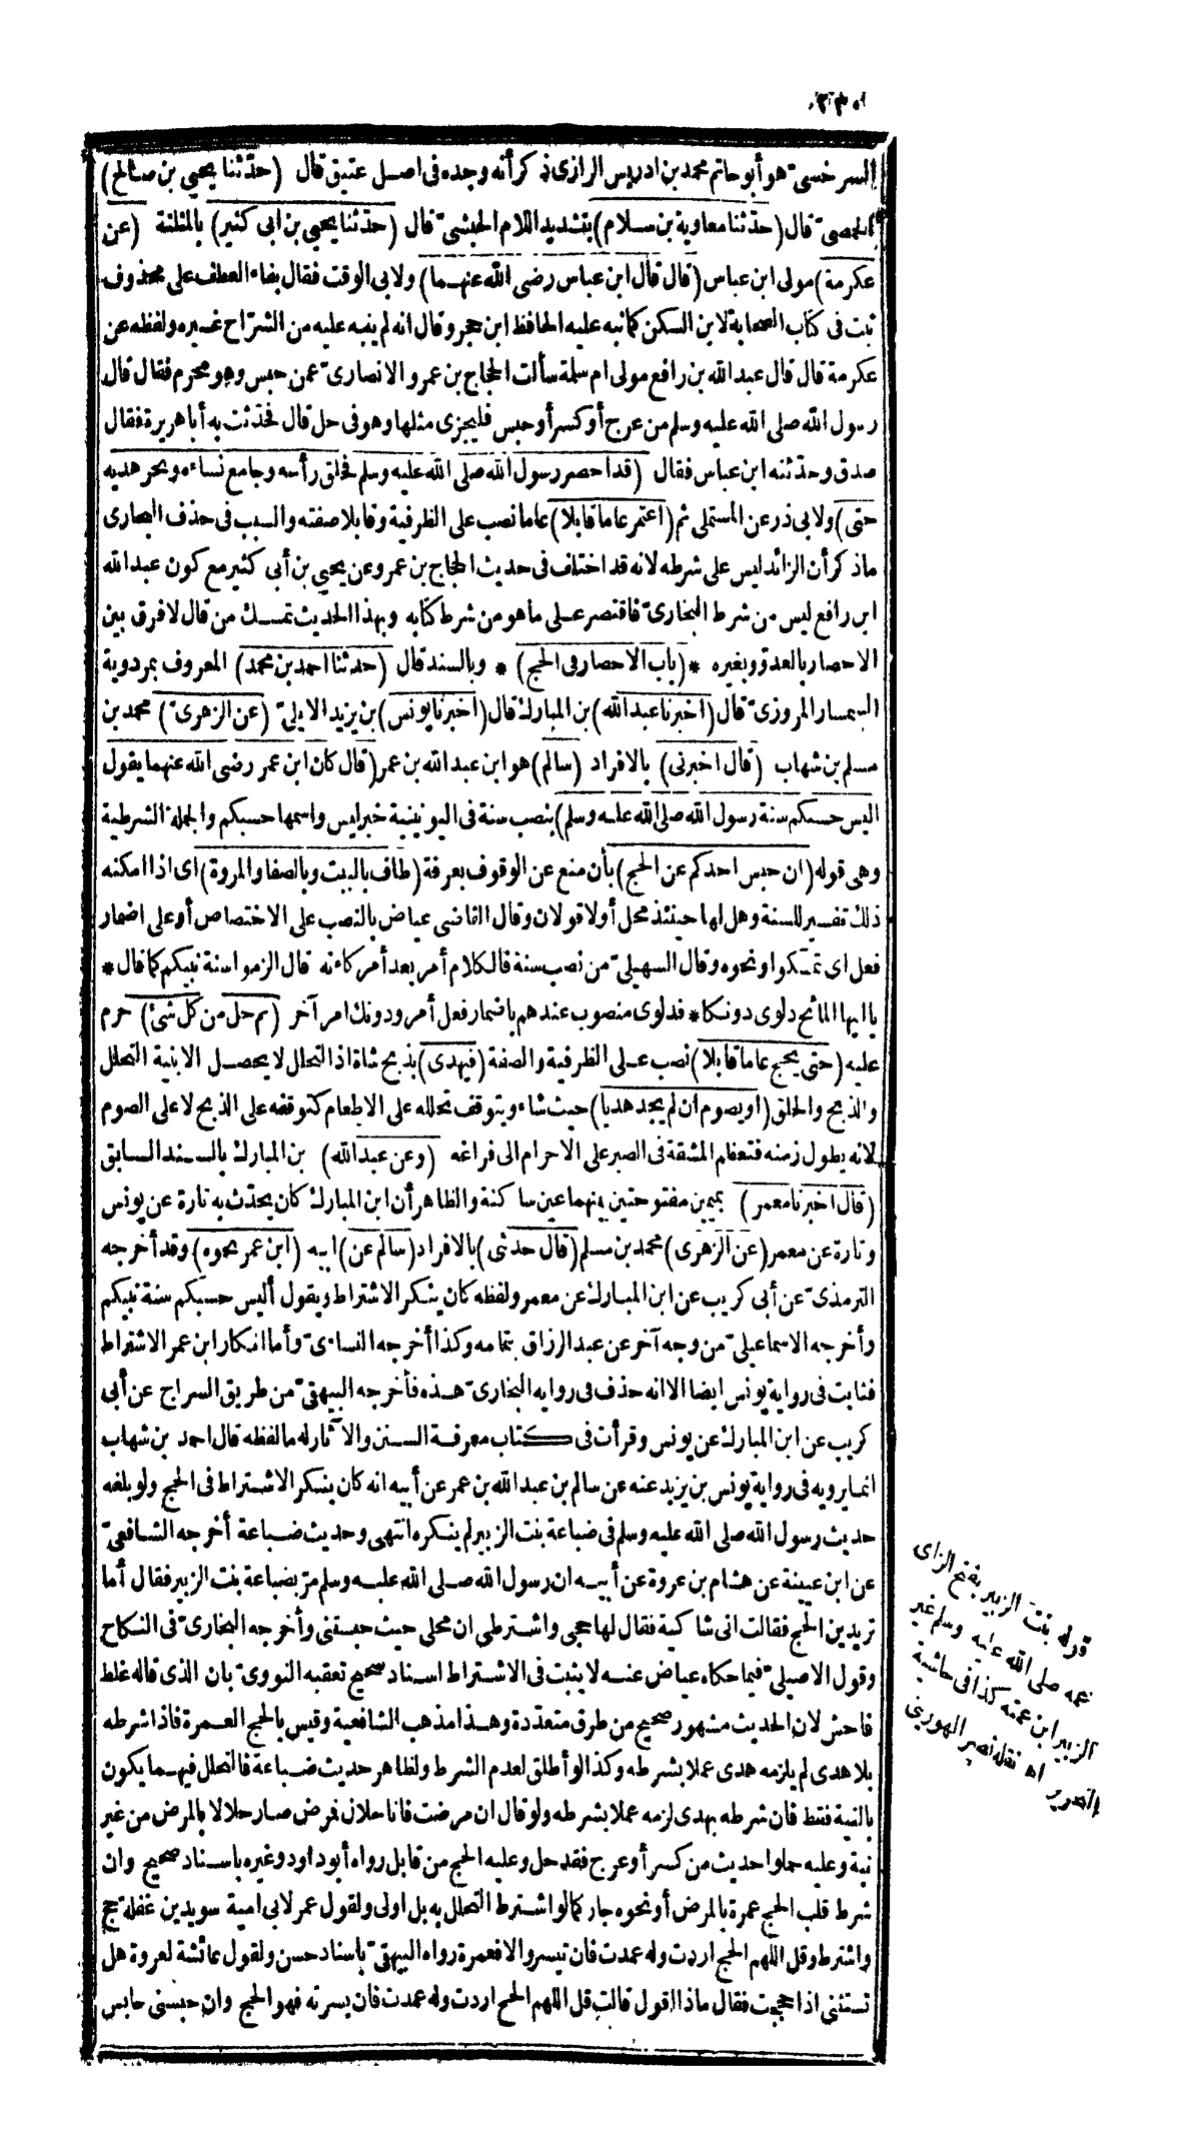 ٣٣٠
السرخسىّ هو أبو حاتم محمد بن ادريس الرازى ذكر أنه وجده فى اصل عتيق قال (حدّثنا يحيى بن صالح)
الحمصىّ قال (حدّثنا معاوية بن سلام) بتشديد اللام الحبشىّ قال (حدّثنا يحيى بن ابى كثير) بالمثلثة (عن
عكرمة) مولى ابن عباس (قال قال ابن عباس رضى الله عنهما) ولابى الوقت فقال بفاء العطف على محذوف
ثبت فى كتاب الصحابة لابن السكن كما نبه عليه الحافظ ابن حجر وقال انه لم ينبه عليه من الشرّاح غيره ولفظه عن
عكرمة قال قال عبد الله بن رافع مولى ام سلمة سألت الحجاج بن عمرو الانصارىّ عمن حبس وهو محرم فقال قال
رسول الله صلى الله عليه وسلم من عرج أو كسر أو حبس فليجزى مثلها وهو فى حل قال فحدّثت به أبا هريرة فقال
صدق وحدّثته ابن عباس فقال (قد احصر رسول الله صلى الله عليه وسلم فحلق رأسه وجامع نساءه ونحر هديه
حتى) ولابى ذر عن المستملى ثم (اعتمر عاما قابلا) عاما نصب على الظرفية وقابلا صفته والسبب فى حذف البخارى
ماذكر أن الزائد ليس على شرطه لانه قد اختلف فى حديث الحجاج بن عمرو عن يحيى بن أبى كثير مع كون عبد الله
ابن رافع ليس من شرط البخارىّ فاقتصر على ما هو من شرط كتابه وبهذا الحديث تمسك من قال لا فرق بين
الاحصار بالعدوّ وبغيره * (باب الاحصار فى الحج) * وبالسند قال (حدثنا احمد بن محمد) المعروف بمردوية
السمسار المروزىّ قال (اخبرنا عبد الله) بن المبارك قال (اخبرنا يونس) بن يزيد الايلىّ (عن الزهرىّ) محمد بن
مسلم بن شهاب (قال اخبرنى) بالافراد (سالم) هو ابن عبد الله بن عمر (قال كان ابن عمر رضى الله عنهما يقول
اليس حسبكم سنة رسول الله صلى الله عليه وسلم) بنصب سنة فى اليونينية خبر ليس واسمها حسبكم والجملة الشرطية
وهى قوله (ان حبس احدكم عن الحج) بأن منع عن الوقوف بعرفة (طاف بالبيت وبالصفا والمروة) اى اذا امكنه
ذلك تفسير للسنة وهل لها حينئذ محل أولا قولان وقال القاضى عياض بالنصب على الاختصاص أو على اضمار
فعل اى تمسكوا ونحوه وقال السهيلىّ من نصب سنة فالكلام أمر بعد أمر كأنه قال الزموا سنة نبيكم كما قال *
يا ايها المائح دلوى دونكا * فدلوى منصوب عندهم باضمار فعل أمر ودونك امر آخر (ثم حل من كل شئ) حرم
عليه (حتى يحج عاما قابلا) نصب على الظرفية والصفة (فيهدى) بذبح شاة اذ التحلل لا يحصل الا بنية التحلل
والذبح والحلق (او يصوم ان لم يجد هديا) حيث شاء ويتوقف تحلله على الاطعام كتوقفه على الذبح لا على الصوم
لانه يطول زمنه فتعظم المشقة فى الصبر على الاحرام الى فراغه (وعن عبد الله) بن المبارك بالسند السابق
(قال اخبرنا معمر) بميمين مفتوحتين بينهما عين ساكنة والظاهر أن ابن المبارك كان يحدّث به تارة عن يونس
وتارة عن معمر (عن الزهرى) محمد بن مسلم (قال حدثنى) بالافراد (سالم عن) ابيه (ابن عمر نحوه) وقد أخرجه
الترمذىّ عن أبى كريب عن ابن المبارك عن معمر ولفظه كان ينكر الاشتراط ويقول أليس حسبكم سنة نبيكم
وأخرجه الاسماعيلىّ من وجه آخر عن عبد الرزاق بتمامه وكذا أخرجه النساءىّ وأما انكار ابن عمر الاشتراط
فثابت فى رواية يونس ايضا الا انه حذف فى رواية البخارىّ هذه فأخرجه البيهقىّ من طريق السراج عن أبى
كريب عن ابن المبارك عن يونس وقرأت فى كتاب معرفة السنن والآثار له ما لفظه قال احمد بن شهاب
انما يرويه فى رواية يونس بن يزيد عنه عن سالم بن عبد الله بن عمر عن أبيه انه كان ينكر الاشتراط فى الحج ولو بلغه
حديث رسول الله صلى الله عليه وسلم فى ضباعة بنت الزبير لم ينكره انتهى وحديث ضباعة أخرجه الشافعىّ
عن ابن عيينة عن هشام بن عروة عن أبيه ان رسول الله صلى الله عليه وسلم مرّ بضباعة بنت الزبير فقال أما
تريدين الحج فقالت انى شاكية فقال لها حجى واشترطى ان محلى حيث حبستنى وأخرجه البخارىّ فى النكاح
وقول الاصيلىّ فيما حكاه عياض عنه لا يثبت فى الاشتراط اسناد صحيح تعقبه النووىّ بان الذى قاله غلط
فاحش لان الحديث مشهور صحيح من طرق متعدّدة وهذا مذهب الشافعية وقيس بالحج العمرة فاذا شرطه
بلا هدى لم يلزمه هدى عملا بشرطه وكذا لو أطلق لعدم الشرط ولظاهر حديث ضباعة فالتحلل فيهما يكون
بالنية فقط فان شرطه بهدى لزمه عملا بشرطه ولو قال ان مرضت فانا حلال فمرض صار حلالا بالمرض من غير
نية وعليه حملوا حديث من كسر أو عرج فقد حل وعليه الحج من قابل رواه أبو داود وغيره باسناد صحيح وان
شرط قلب الحج عمرة بالمرض أو نحوه جاز كما لو اشترط التحلل به بل اولى ولقول عمر لابى امية سويد بن غفلة حج
واشترط وقل اللهم الحج اردت وله عمدت فان تيسر والا فعمرة رواه البيهقىّ باسناد حسن ولقول عائشة لعروة هل
تستثنى اذا حججت فقال ماذا اقول قالت قل اللهم الحج اردت وله عمدت فان يسرته فهو الحج وان حبسنى حابس
قوله بنت الزبير بفتح الزاى
عمه صلى الله عليه وسلم غير
الزبير ابن عمته كذا فى حاشية
التحرير اه نقله نصر الهورينى